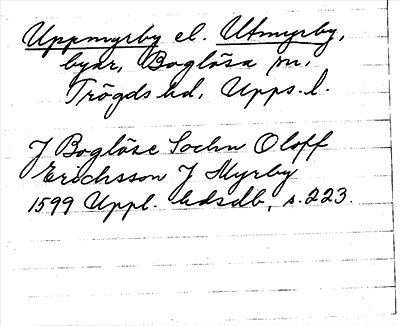 Uppmyrby el. Utmyrby,
byar, Boglösa sn.
Trögds hd, Upps. l.
J Boglöse Sochn Oloff
Erichsson J Myrby
1599 Uppl. hdrdb, s. 223.